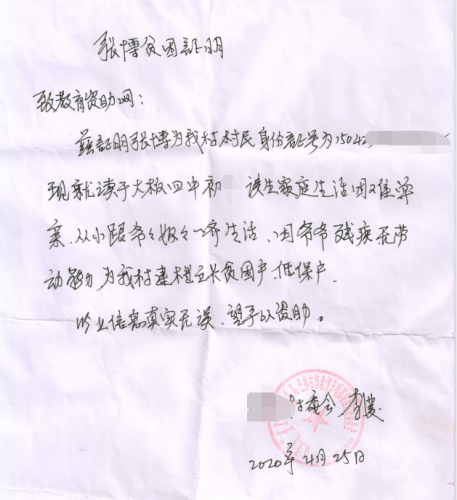 张博贫困证明
致教育资助网：
兹证明张博为我村村民身份证号为15042
现就读于大板四中初 该生家庭生活困难单
亲，从小跟爷々奶々一齐生活、因爷爷残疾无劳
动能力为我村建档立卡贫困户、低保户．
以上信息真实无误，望予以资助。
村委会 李
2020年4月25日